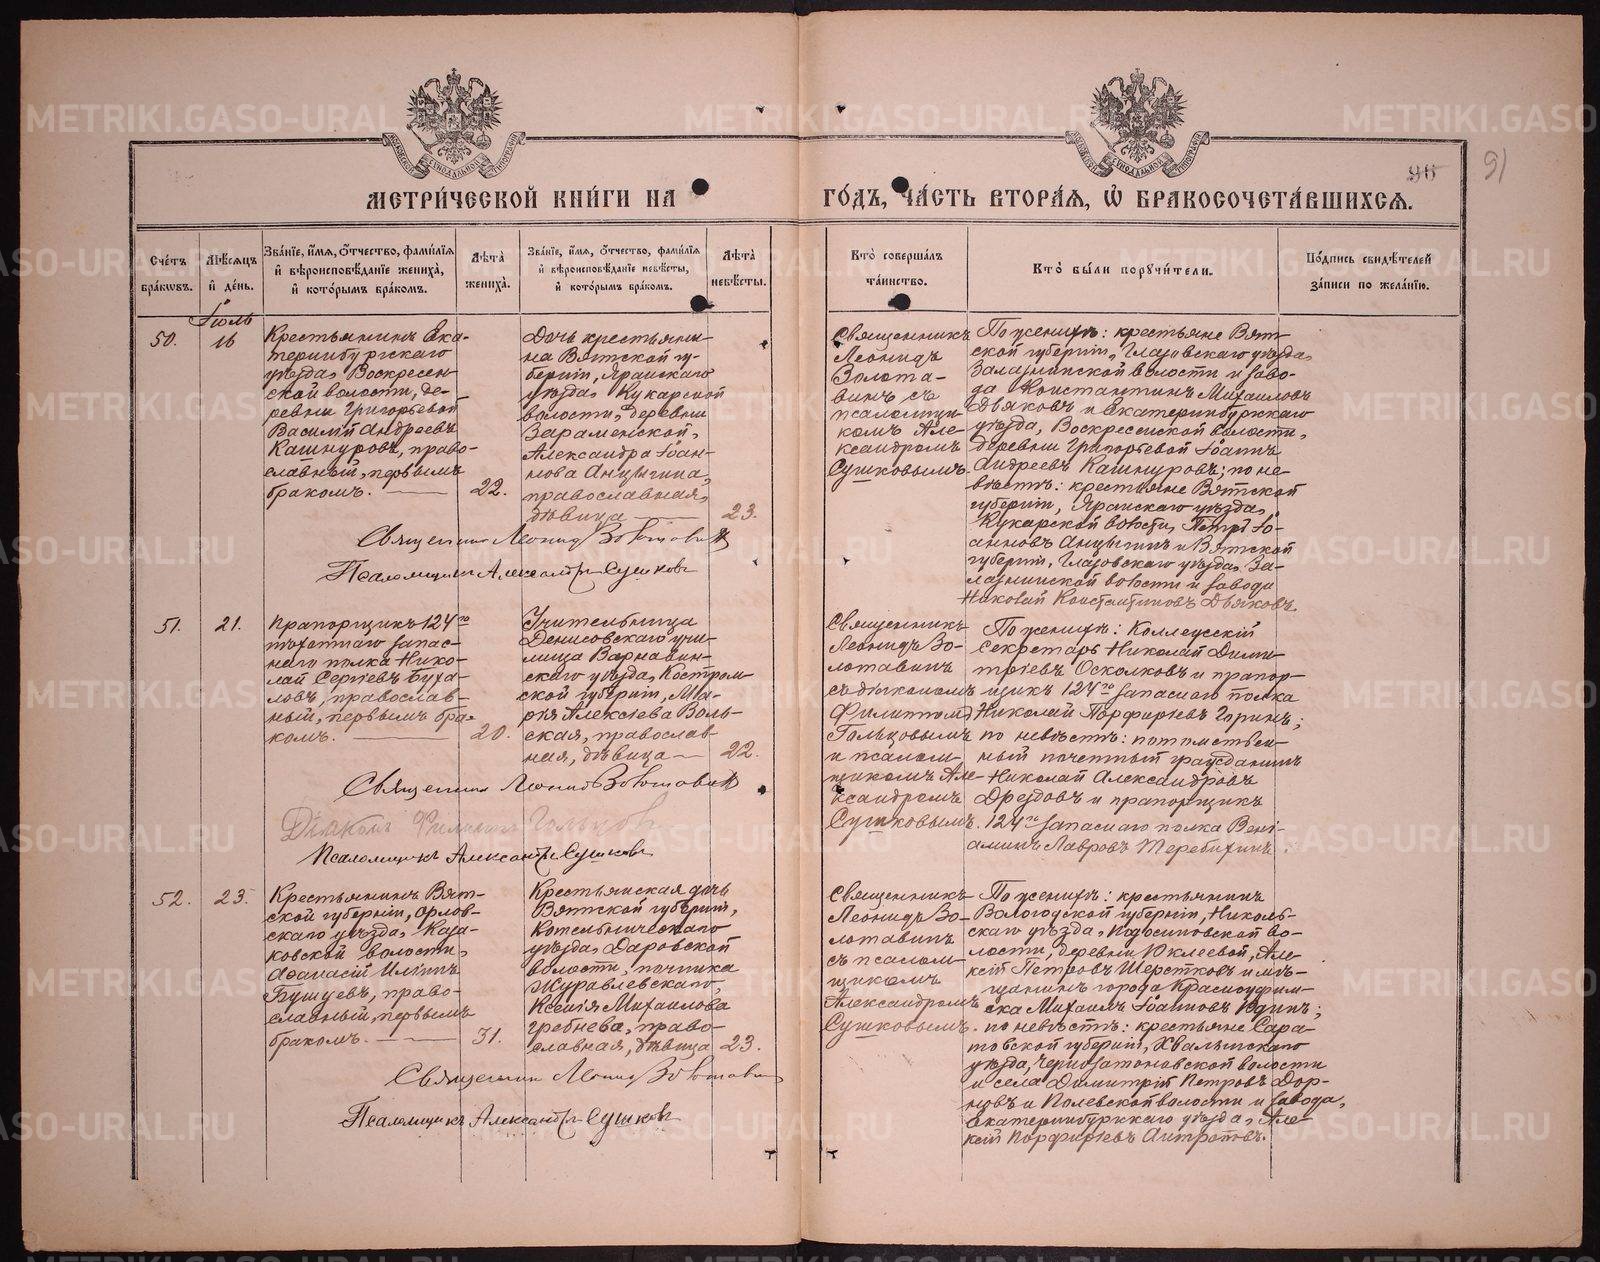 МЕТРИ́ЧЕСКОЙ КНИ́ГИ НА ГО́ДЪ, ЧА́СТЬ ВТОРА́Я, Ѽ БРАКОСОЧЕТА́ВШИХСЯ.
96
91
Сче́тъ бра́кѡвъ.
Мѣ́сяцъ и҆ де́нь.
Зва́нїе, и҆́мя, ѻ҆́тчество, фами́лїя и҆ вѣроисповѣ́данїе жениха̀, и҆ кото́рымъ бра́комъ.
Лѣта̀ жениха̀.
Зва́нїе, и҆́мя, ѻ҆́тчество, фами́лїя и҆ вѣроисповѣ́данїе невѣ́сты, и҆ кото́рымъ бра́комъ.
Лѣта̀ невѣ́сты.
Кто̀ соверша́лъ та́инство.
Кто̀ бы́ли поручи́тели.
По́дпись свидѣ́телей за́писи по жела́нїю.
Іюль
50.
16
Крестьянинъ Ека-
теринбургскаго
уѣзда, Воскресен-
ской волости, де-
ревни Григорьевой
Василій Андреевъ
Кашнуровъ, право-
славный, первымъ
бракомъ.
22.
Дочь крестьяни-
на Вятской гу-
берніи, Яранскаго
уѣзда, Кукарской
волости, деревни
Зараменской,
Александра Іоан-
нова Анцыгина,
православная,
дѣвица
23.
Священникъ
Леонидъ
Золота-
винъ съ
псаломщи-
комъ Але-
ксандромъ
Сушковымъ.
По женихѣ: крестьяне Вят-
ской губерніи, Глазовскаго уѣзда,
Залазнинской волости и заво-
да Константинъ Михаиловъ
Дьяковъ и Екатеринбургскаго
уѣзда, Воскресенской волости,
деревни Григорьевой Іоаннъ
Андреевъ Кашнуровъ; по не-
вѣстѣ: крестьяне Вятской
губерніи, Яранскаго уѣзда,
Кукарской волости, Петръ Іо-
анновъ Анцыгинъ и Вятской
губерніи, Глазовскаго уѣзда, За-
лазнинской волости и завода
Николай Константиновъ Дьяковъ.
Священникъ Леонидъ Золотавинъ
Псаломщикъ Александръ Сушковъ
51.
21.
Прапорщикъ 124го
пѣхотнаго запас-
наго полка Нико-
лай Сергіевъ Буха-
ловъ, православ-
ный, первымъ бра-
комъ.
20.
Учительница
Денисовскаго учи-
лища Варнавин-
скаго уѣзда, Костром-
ской губерніи, Ма-
рія Алексіева Воль-
ская, православ-
ная, дѣвица
22.
Священникъ
Леонидъ Зо-
лотавинъ
съ діакономъ
Филиппомъ
Гольцовымъ
и псалом-
щикомъ Але-
ксандромъ
Сушковымъ.
По женихѣ: Коллежскій
секретарь Николай Дими-
тріевъ Осколковъ и прапор-
щикъ 124го запаснаго полка
Николай Порфиріевъ Горинъ;
по невѣстѣ: потомствен-
ный почетный гражданинъ
Николай Александровъ
Дроздовъ и прапорщикъ
124го запаснаго полка Вені-
аминъ Лавровъ Теребихинъ.
Священникъ Леонидъ Золотавинъ
Діаконъ Филиппъ Гольцовъ
Псаломщикъ Александръ Сушковъ
52.
23.
Крестьянинъ Вят-
ской губерніи, Орлов-
скаго уѣзда, Каза-
ковской волости,
Аѳанасій Иліинъ
Бушуевъ, право-
славный, первымъ
бракомъ.
31.
Крестьянская дочь
Вятской губерніи,
Котельническаго
уѣзда, Даровской
волости, починка
Журавлевскаго,
Ксенія Михаилова
Гребнева, право-
славная, дѣвица
23.
Священникъ
Леонидъ Зо-
лотавинъ
съ псалом-
щикомъ
Александромъ
Сушковымъ.
По женихѣ: крестьянинъ
Вологодской губерніи, Николь-
скаго уѣзда, Подосиновской во-
лости, деревни Юклеевой, Але-
ксій Петровъ Шерстковъ и мѣ-
щанинъ города Красноуфим-
ска Михаилъ Іоанновъ Юдинъ;
по невѣстѣ: крестьяне Сара-
товской губерніи, Хвалынскаго
уѣзда, Чернозатоновской волости
и села Димитрій Петровъ Дор-
новъ и Полевской волости и завода,
Екатеринбургскаго уѣзда, Але-
ксій Порфиріевъ Антроповъ.
Священникъ Леонидъ Золотавинъ
Псаломщикъ Александръ Сушковъ
METRIKI.GASO-URAL.RU